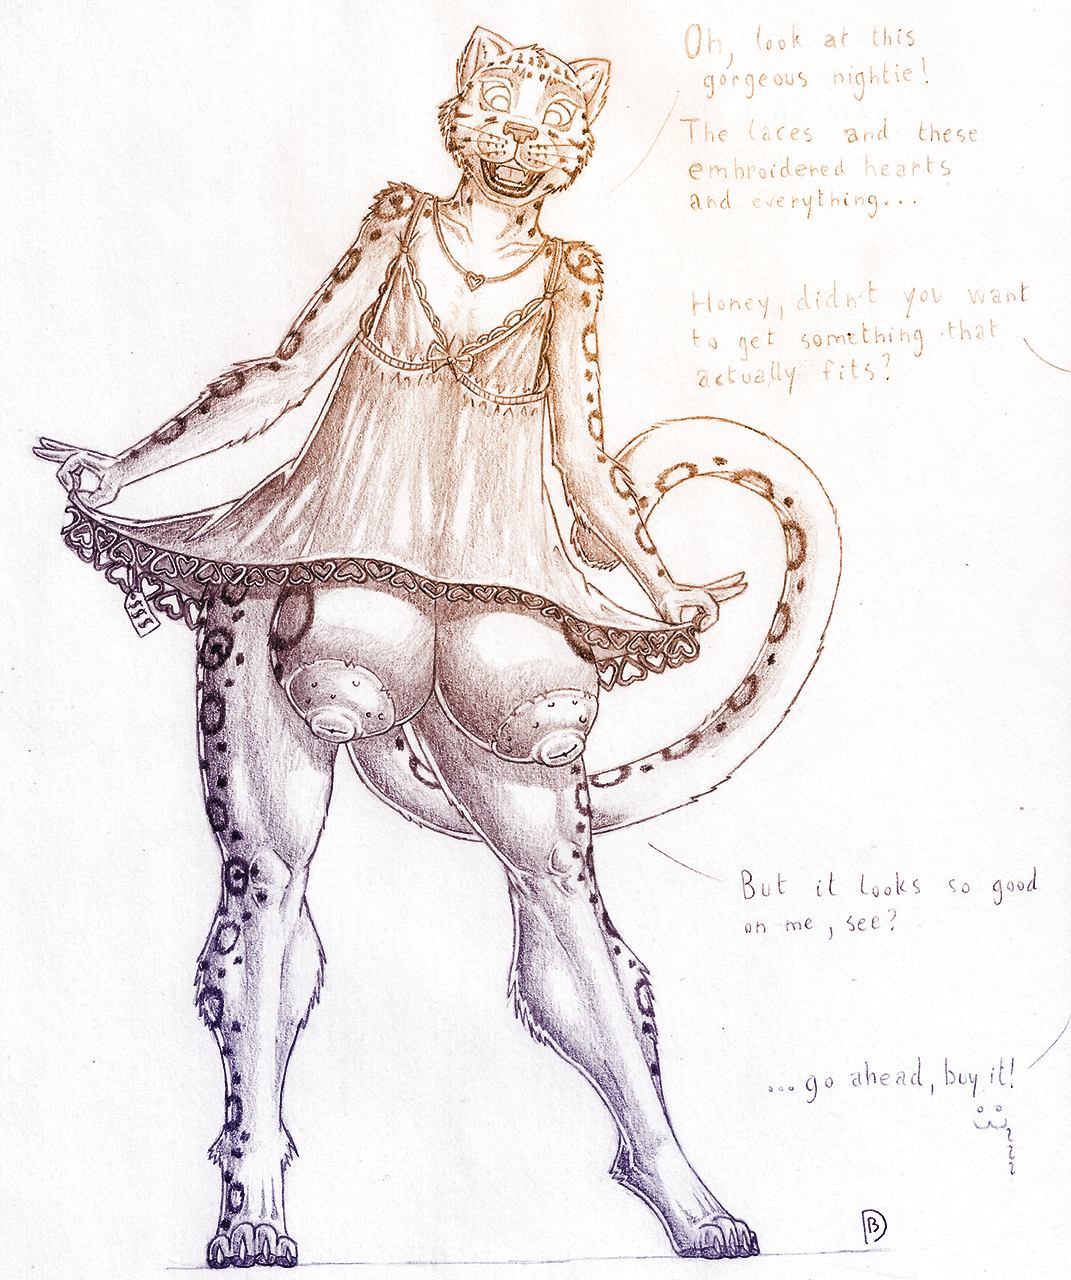 Oh, look at this
gorgeous nightie!
The laces and these
embroidered hearts
and everything...
Honey, didn't you want
to get something that
actually fits?
$$$
But it looks so good
on me, see?
...go ahead, buy it!